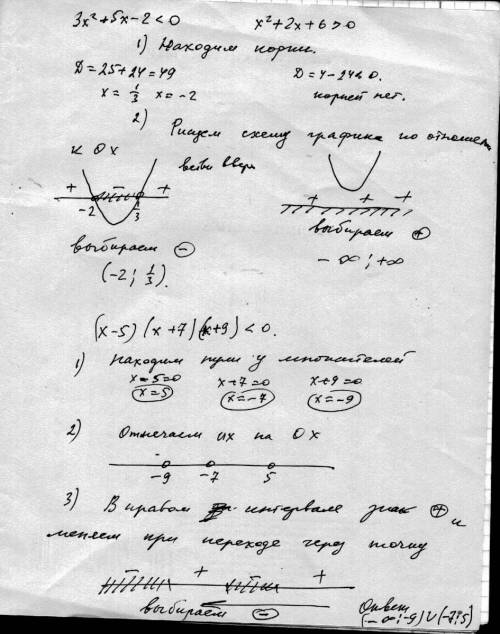 3x²+5x-2<0 x²+2x+6>0
1) Находим корни.
D=25+24=49 D=4-24<0.
x=1/3 x=-2 корней нет.
2) Рисуем схему графика по отношен.
к OX ветви вверх
+ − + + + +
-2 1/3
выбираем ⊖ выбираем ⊕
(-2; 1/3). -∞; +∞
(x-5)(x+7)(x+9)<0.
1) Находим нули у множителей
x-5=0 x+7=0 x+9=0
x=5 x=-7 x=-9
2) Отмечаем их на OX
-9 -7 5
3) В правом интервале знак ⊕ и
меняем при переходе через точку
− + − +
выбираем ⊖ Ответ
(-∞;-9)∪(-7;5)